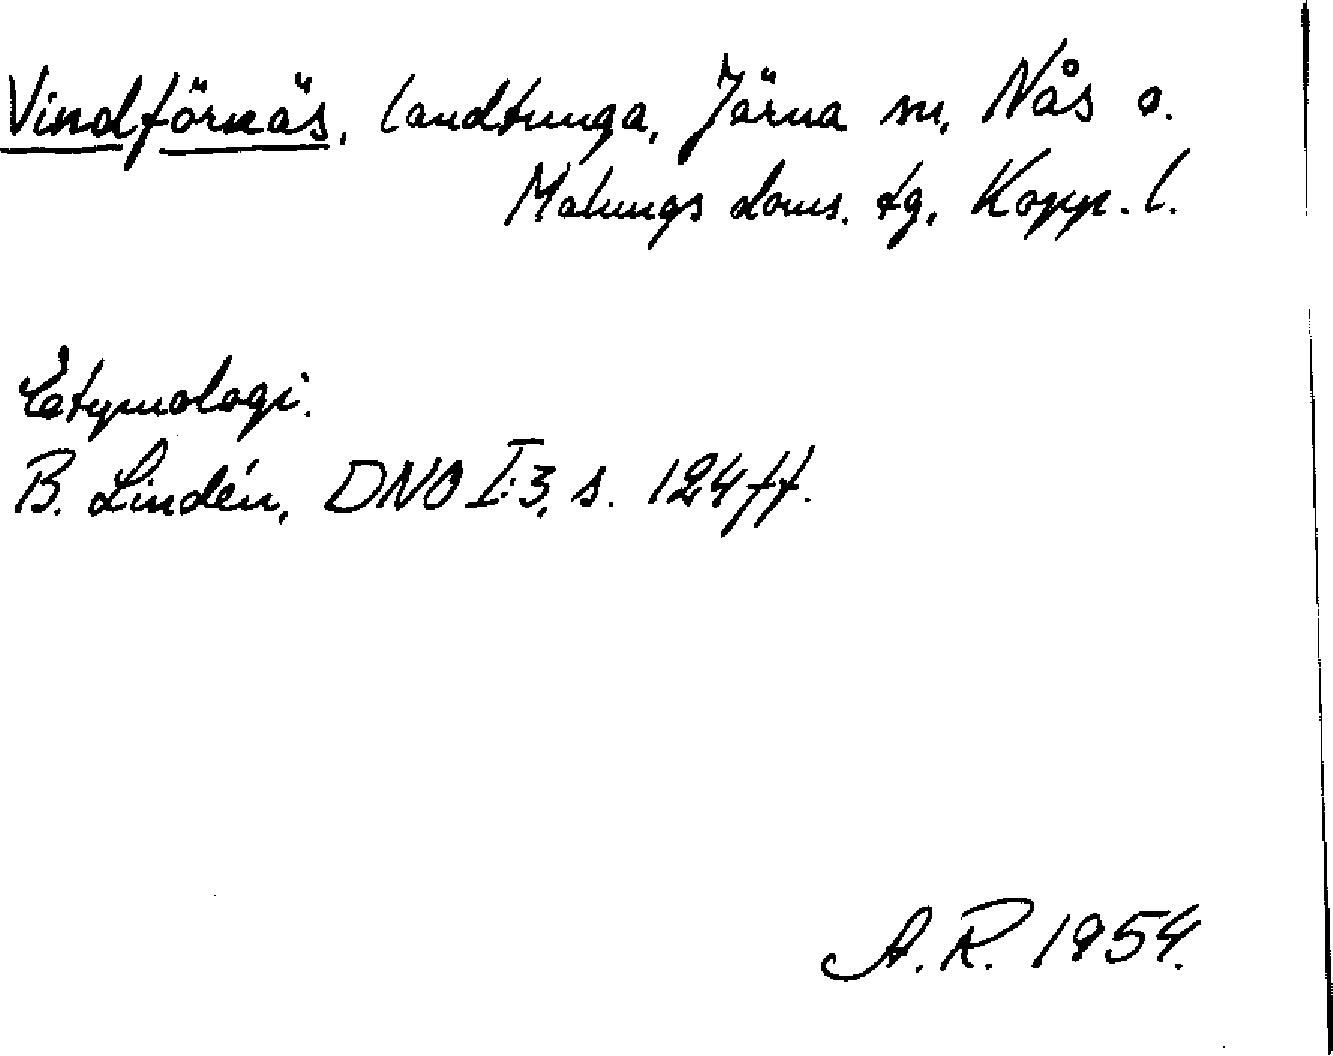 Vindförnäs, landtunga, Järna sn, Nås o.
Malungs doms. tg, Kopp. l.
Etymologi.
B. Lindén, DNO I:3, s. 124 ff.
A. R. 1954.